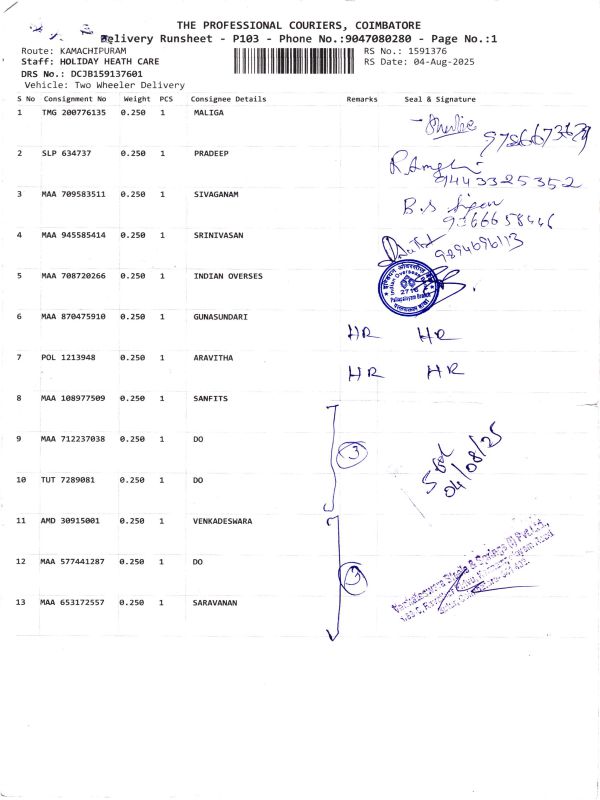 THE PROFESSIONAL COURIERS, COIMBATORE
Delivery Runsheet - P103 - Phone No.:9047080280 - Page No.:1
Route: KAMACHIPURAM RS No.: 1591376
Staff: HOLIDAY HEATH CARE RS Date: 04-Aug-2025
DRS No.: DCJB159137601
Vehicle: Two Wheeler Delivery
S No Consignment No Weight PCS Consignee Details Remarks Seal & Signature
1 TMG 200776135 0.250 1 MALIGA
2 SLP 634737 0.250 1 PRADEEP
9443325352
3 MAA 709583511 0.250 1 SIVAGANAM
B.S
9366658446
4 MAA 945585414 0.250 1 SRINIVASAN
9894696113
5 MAA 708720266 0.250 1 INDIAN OVERSES
Indian Overseas
2716
6 MAA 870475910 0.250 1 GUNASUNDARI
HR HR
7 POL 1213948 0.250 1 ARAVITHA
HR HR
8 MAA 108977509 0.250 1 SANFITS
9 MAA 712237038 0.250 1 DO
3
04/08/25
10 TUT 7289081 0.250 1 DO
11 AMD 30915001 0.250 1 VENKADESWARA
12 MAA 577441287 0.250 1 DO
13 MAA 653172557 0.250 1 SARAVANAN